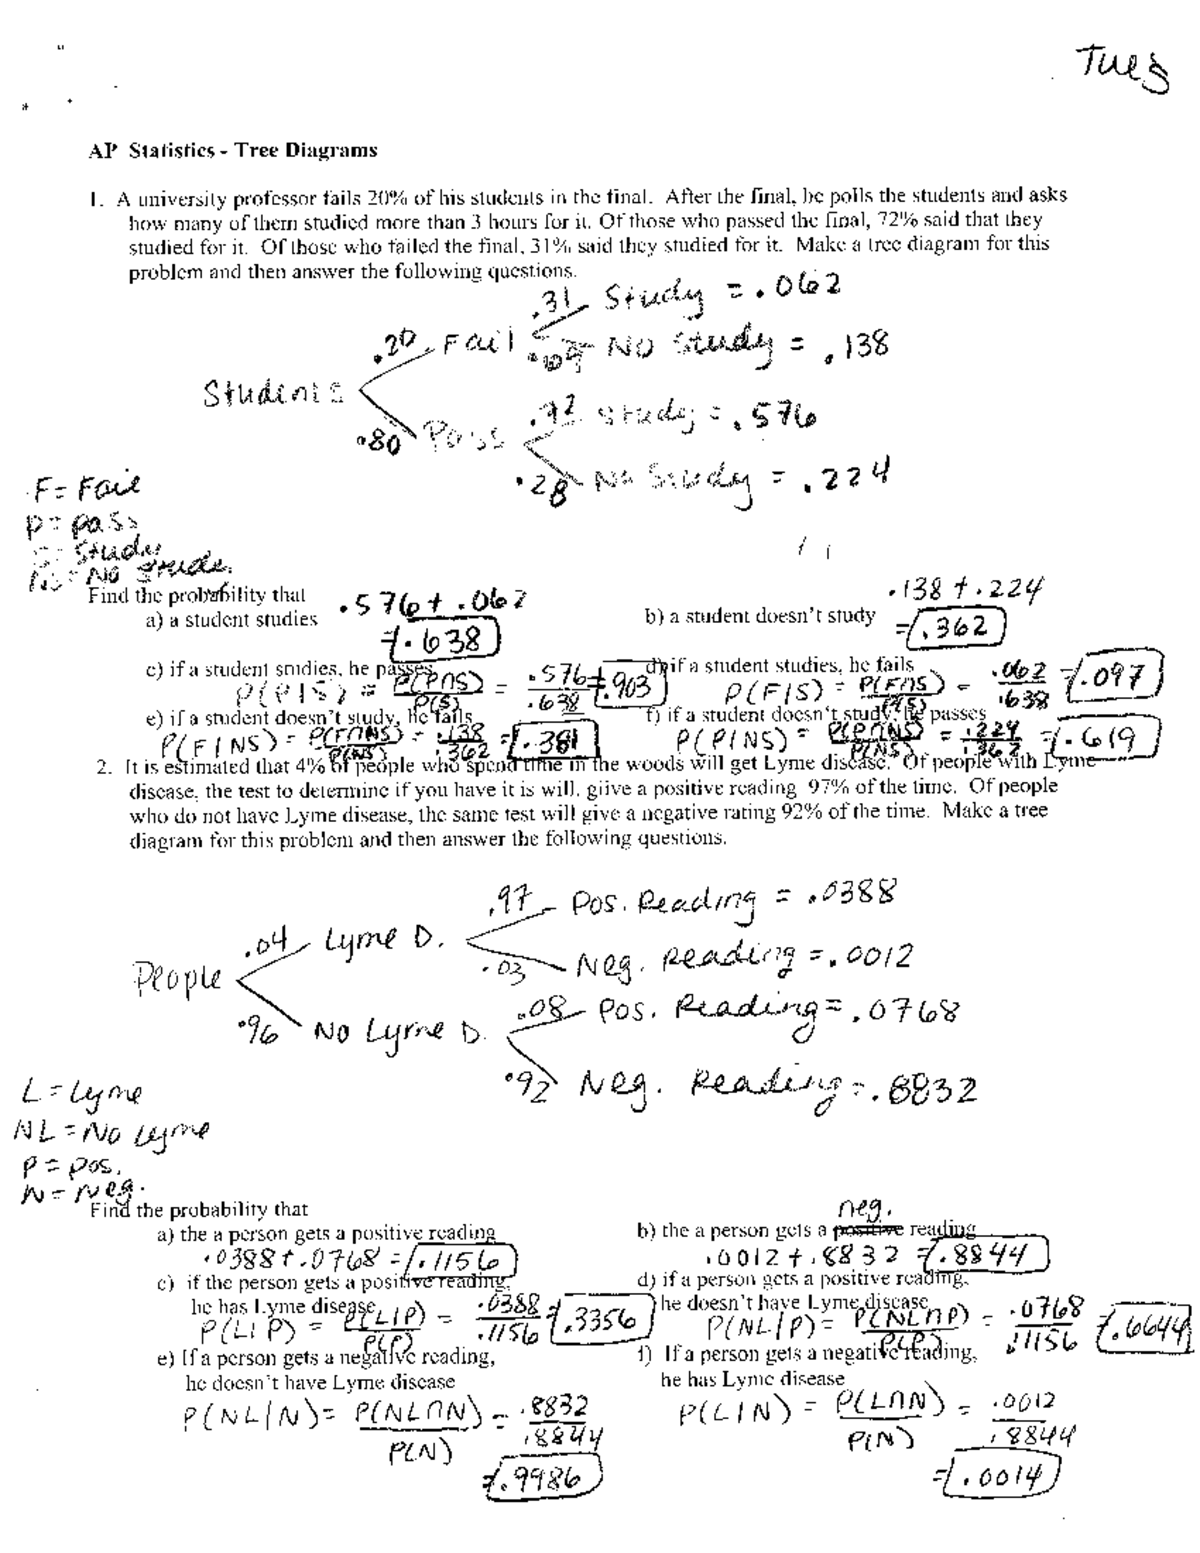 Tues
AP Statistics - Tree Diagrams
1. A university professor fails 20% of his students in the final. After the final, he polls the students and asks
how many of them studied more than 3 hours for it. Of those who passed the final, 72% said that they
studied for it. Of those who failed the final, 31% said they studied for it. Make a tree diagram for this
problem and then answer the following questions.
.31 Study = .062
.20 Fail
No Study = .138
Students
.72 Study = .576
.80 Pass
.28 No Study = .224
F = Fail
P = pass
= Study
NS = No Study
Find the probability that
.576 + .062
.138 + .224
a) a student studies
= .638
b) a student doesn't study
= .362
c) if a student studies, he passes
P(P|S) = P(P∩S)/P(S) = .576/.638 = .903
d) if a student studies, he fails
P(F|S) = P(F∩S)/P(S) = .062/.638 = .097
e) if a student doesn't study, he fails
P(F|NS) = P(F∩NS)/P(NS) = .138/.362 = .381
f) if a student doesn't study, he passes
P(P|NS) = P(P∩NS)/P(NS) = .224/.362 = .619
2. It is estimated that 4% of people who spend time in the woods will get Lyme disease. Of people with Lyme
disease, the test to determine if you have it is will, giive a positive reading 97% of the time. Of people
who do not have Lyme disease, the same test will give a negative rating 92% of the time. Make a tree
diagram for this problem and then answer the following questions.
.97 Pos. Reading = .0388
.04 Lyme D.
.03 Neg. Reading = .0012
People
.08 Pos. Reading = .0768
.96 No Lyme D.
.92 Neg. Reading = .8832
L = Lyme
NL = No Lyme
P = pos.
N = Neg.
Find the probability that
a) the a person gets a positive reading
.0388 + .0768 = .1156
neg.
b) the a person gets a positive reading
.0012 + .8832 = .8844
c) if the person gets a positive reading,
he has Lyme disease
P(L|P) = P(L|P)/P(P) = .0388/.1156 = .3356
d) if a person gets a positive reading,
he doesn't have Lyme disease
P(NL|P) = P(NL∩P)/P(P) = .0768/.1156 = .6644
e) If a person gets a negative reading,
he doesn't have Lyme disease
P(NL|N) = P(NL∩N)/P(N) = .8832/.8844
= .9986
f) If a person gets a negative reading,
he has Lyme disease
P(L|N) = P(L∩N)/P(N) = .0012/.8844
= .0014